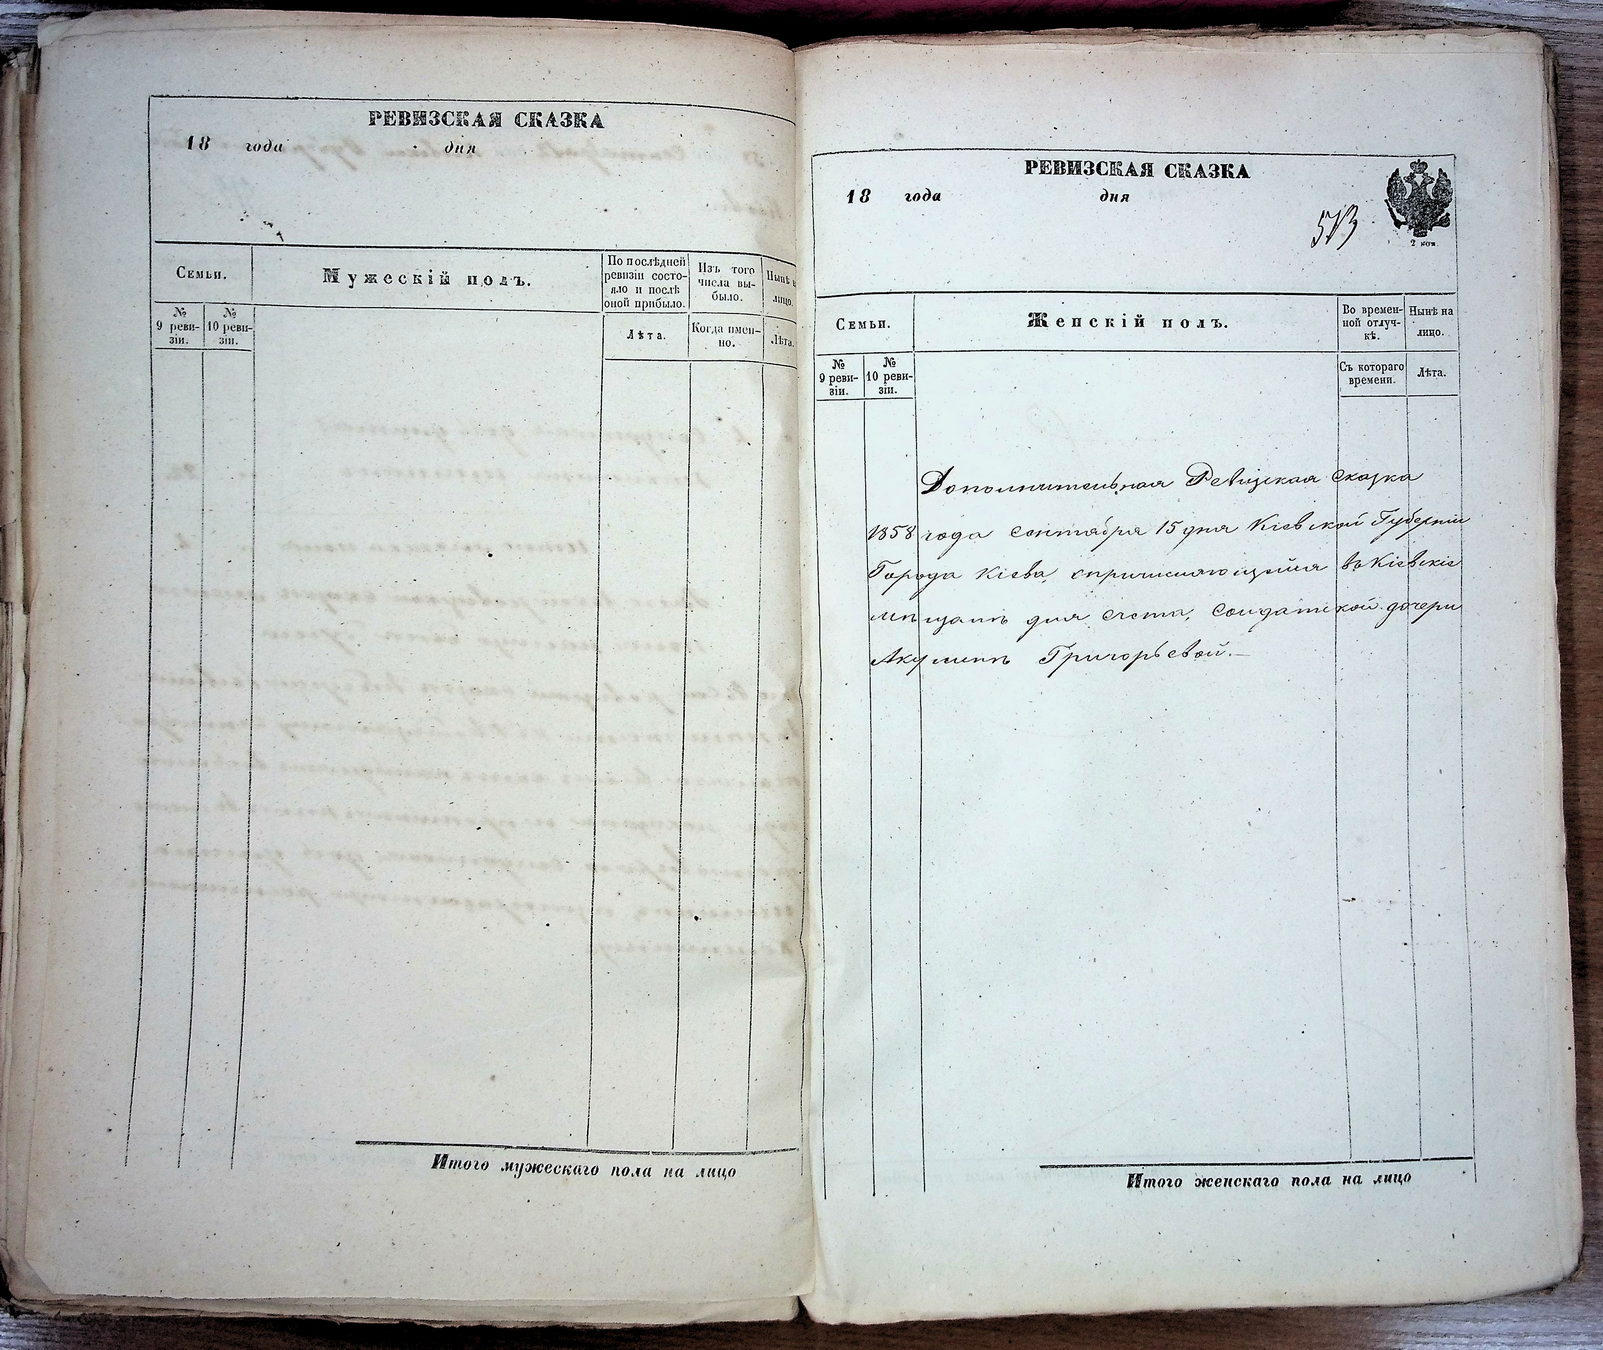 РЕВИЗСКАЯ СКАЗКА
18 года дня
Семьи.
Мужескій полъ.
По послѣдней
ревизіи состо-
яло и послѣ
оной прибыло.
Изъ того
числа вы-
было.
Нынѣ
лицо.
№
9 реви-
зіи.
№
10 реви-
зіи.
Лѣта.
Когда имен-
но.
Лѣта.
Итого мужескаго пола на лицо
РЕВИЗСКАЯ СКАЗКА
18 года дня
513
2 коп.
Семьи.
Женскій полъ.
Во времен-
ной отлуч-
кѣ.
Нынѣ на
лицо.
№
9 реви-
зіи.
№
10 реви-
зіи.
Съ котораго
времени.
Лѣта.
Дополнительная Ревизская Сказка
1858 года Сентября 15 дня Кіевской Губерніи
Города Кіева, о причисляющейся въ Кіевскіе
мѣщане для счета, Солдатской дочери
Акулинѣ Григорьевой.—
Итого женскаго пола на лицо